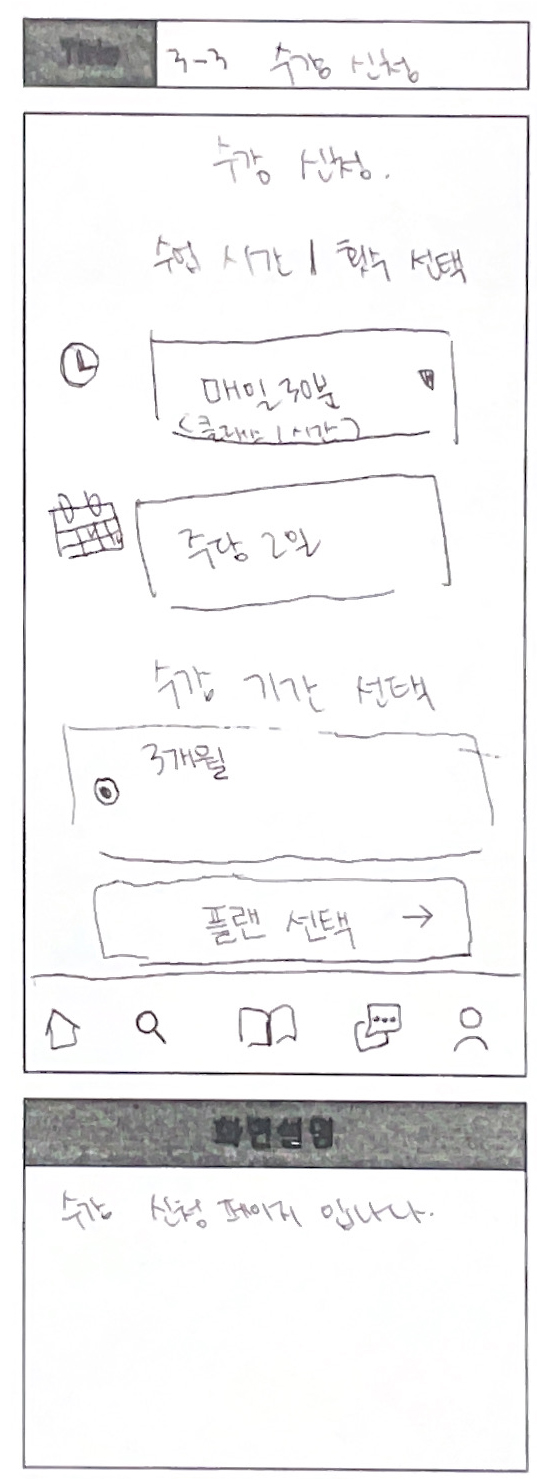 Title 3-3 수강 신청
수강 신청.
수업 시간 | 횟수 선택
매일 30분
(클래스 1시간)
주당 2일
수강 기간 선택
3개월
플랜 선택 →
화면설명
수강 신청 페이지 입니다.